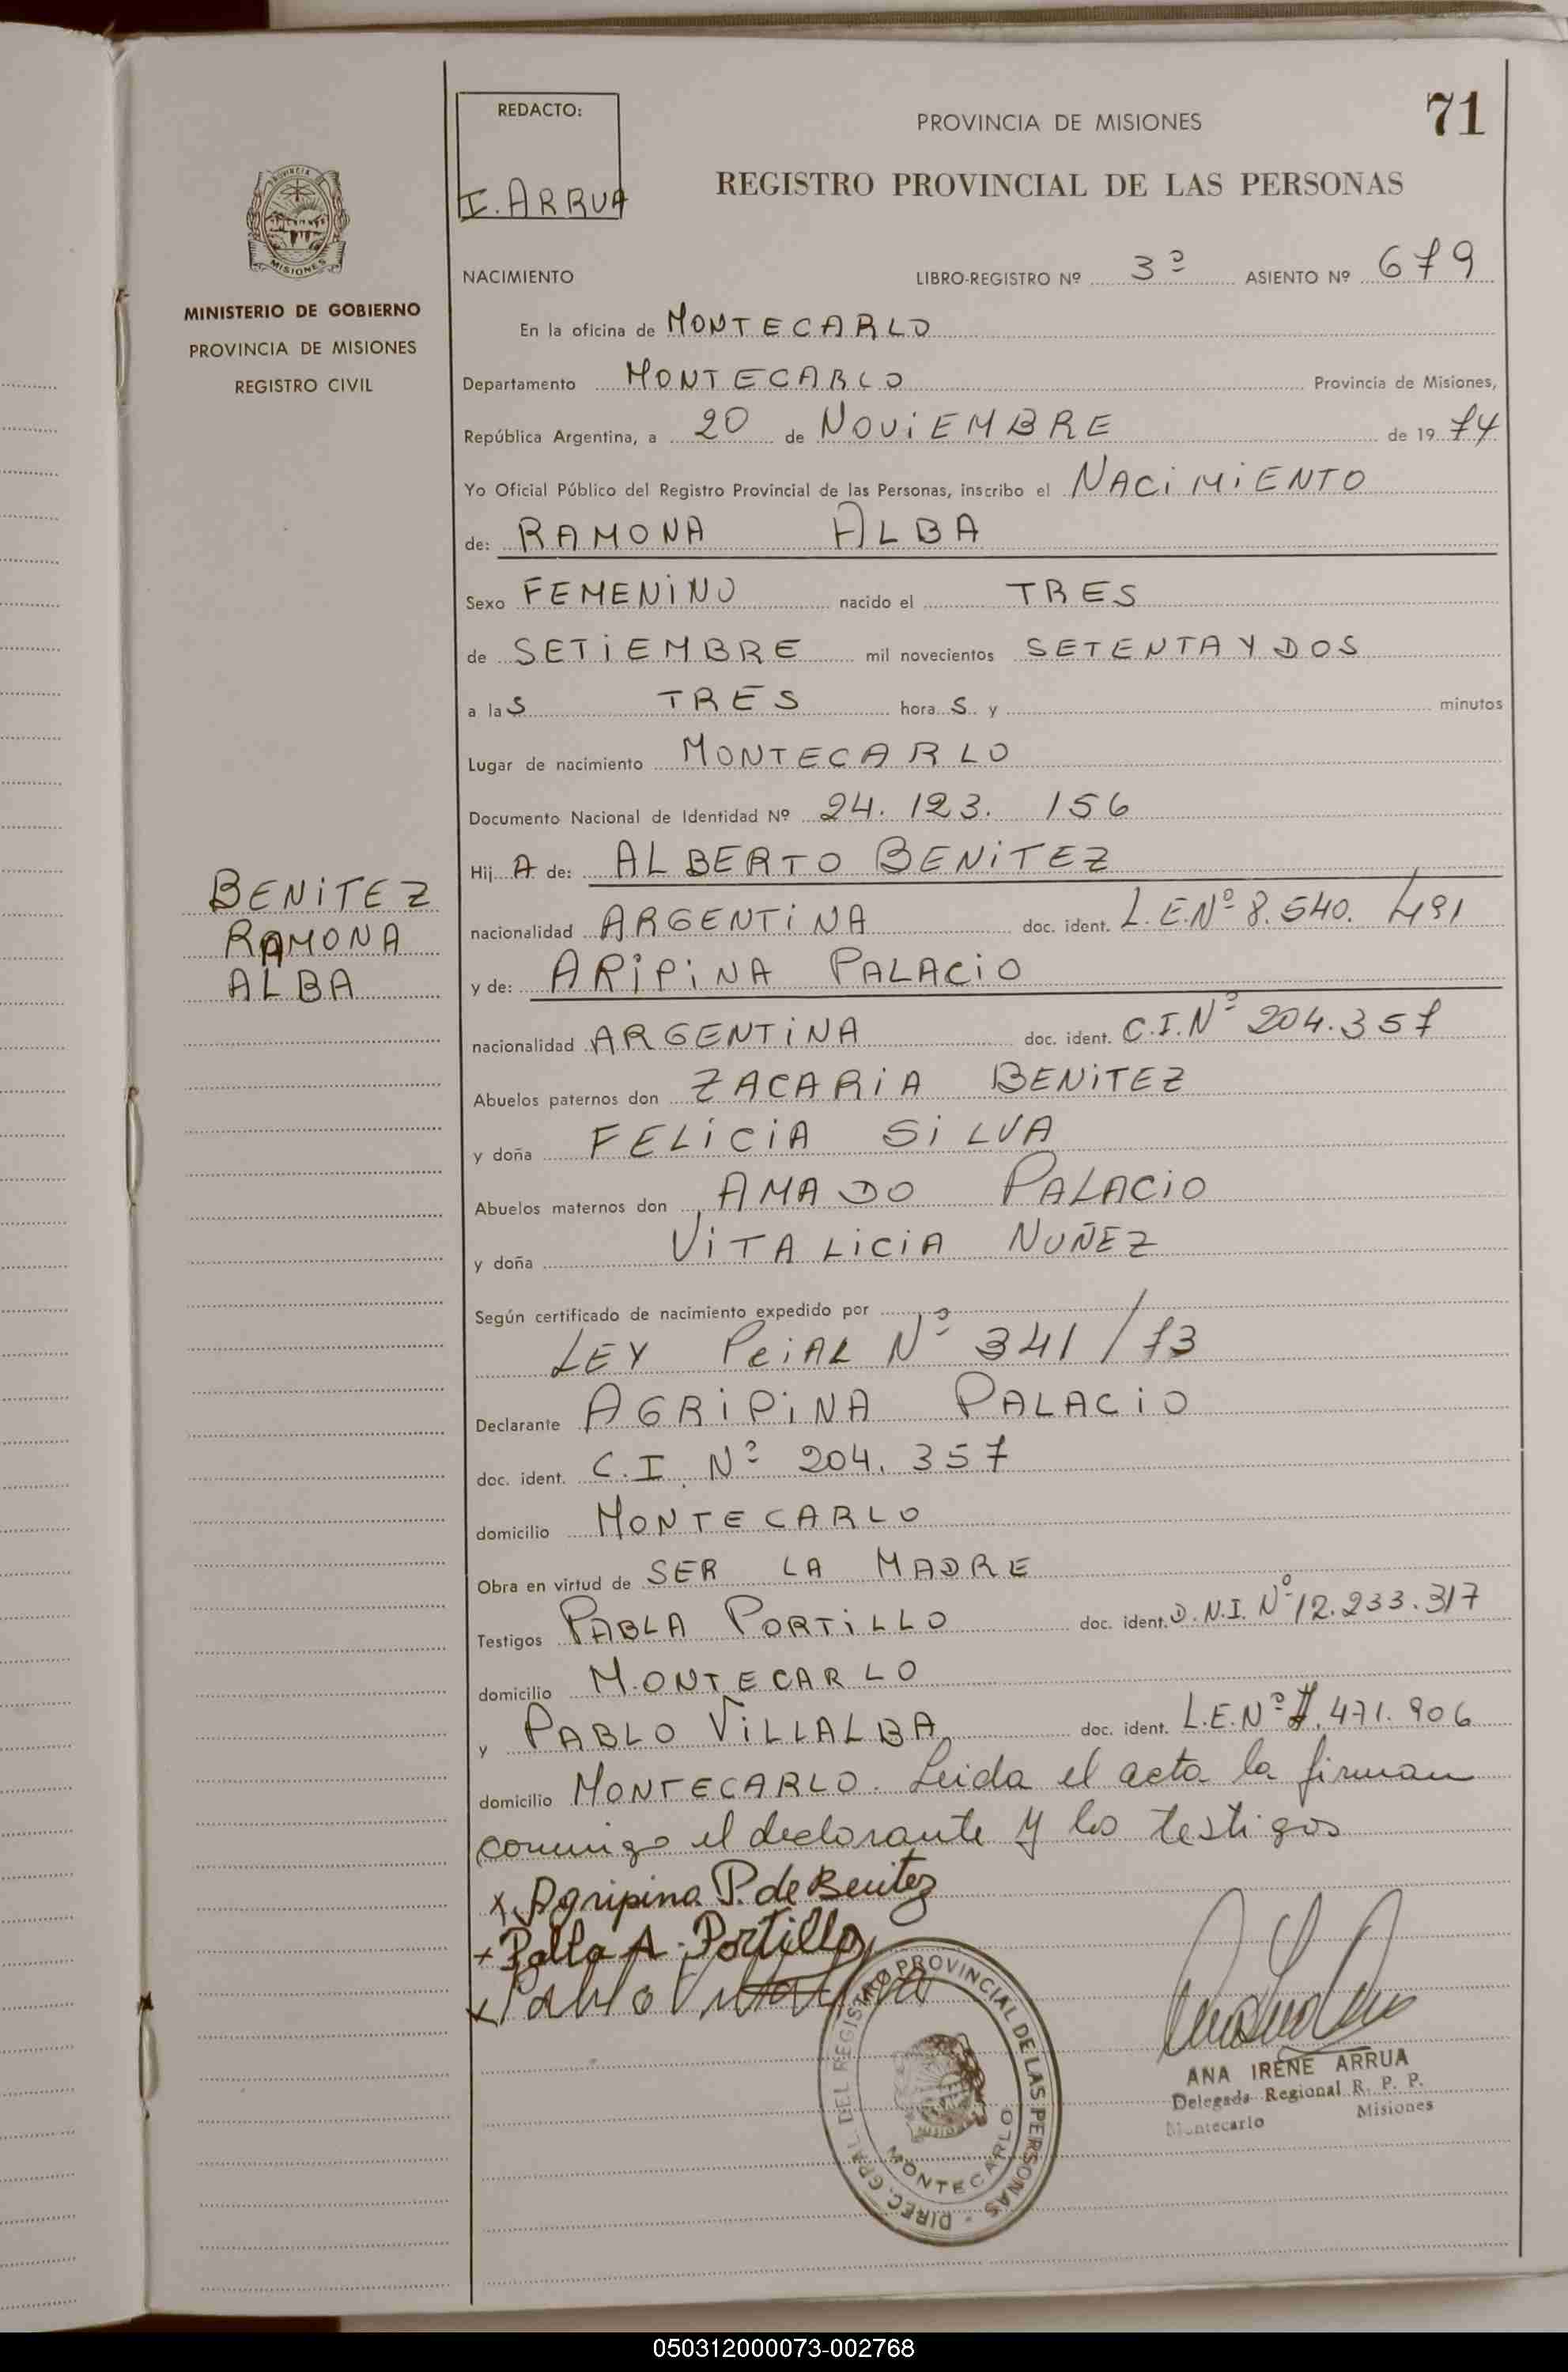 REDACTO:
I. ARRUA
PROVINCIA DE MISIONES
71
REGISTRO PROVINCIAL DE LAS PERSONAS
MISIONES
MINISTERIO DE GOBIERNO
PROVINCIA DE MISIONES
REGISTRO CIVIL
NACIMIENTO LIBRO-REGISTRO Nº 3º ASIENTO Nº 679
En la oficina de MONTECARLO
Departamento MONTECARLO Provincia de Misiones,
República Argentina, a 20 de NOViEMBRE de 19 74
Yo Oficial Público del Registro Provincial de las Personas, inscribo el NACiMiENTO
de: RAMONA ALBA
Sexo FEMENiNO nacido el TRES
de SETiEMBRE mil novecientos SETENTA Y DOS
a las TRES horas y minutos
Lugar de nacimiento MONTECARLO
Documento Nacional de Identidad Nº 24.123.156
HijA de: ALBERTO BENiTEZ
BENiTEZ
RAMONA
ALBA
nacionalidad ARGENTiNA doc. ident. L.E.Nº 8.540.491
y de: ARiPiNA PALACiO
nacionalidad ARGENTiNA doc. ident. C.I.Nº 204.357
Abuelos paternos don ZACARiA BENiTEZ
y doña FELiCiA SiLVA
Abuelos maternos don AMADO PALACiO
y doña ViTALiCiA NUÑEZ
Según certificado de nacimiento expedido por
LEY PciAL Nº 341/73
Declarante AGRiPiNA PALACiO
doc. ident. C.I. Nº 204.357
domicilio MONTECARLO
Obra en virtud de SER LA MADRE
Testigos PABLA PORTiLLO doc. ident. D.N.I. Nº 12.233.317
domicilio MONTECARLO
y PABLO ViLLALBA doc. ident. L.E.Nº 7.471.906
domicilio MONTECARLO. Leida el acta la firman
conmigo el declarante y los testigos
x Agripina P. de Benitez
+ Pabla A. Portillo
x Pablo Villalba
DIREC. GRAL DEL REGISTRO PROVINCIAL DE LAS PERSONAS
MONTECARLO
ANA IRENE ARRUA
Delegada Regional R. P. P.
Montecarlo Misiones
050312000073-002768